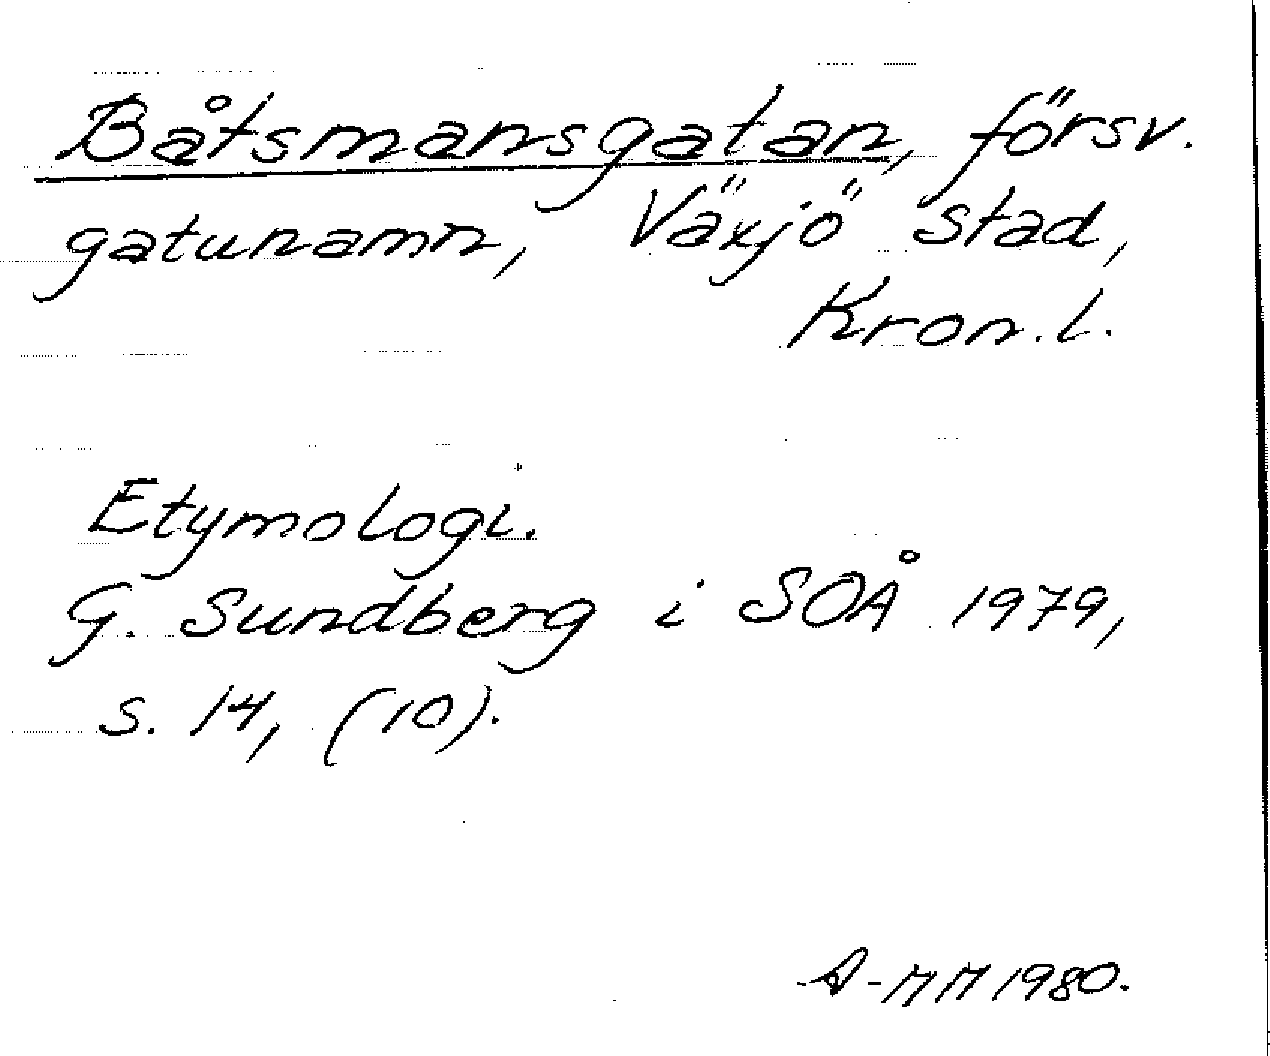 Båtsmansgatan, försv.
gatunamn, Växjö stad,
Kron.l.
Etymologi.
G. Sundberg i SOÅ 1979,
s. 14, (10).
A-MM 1980.